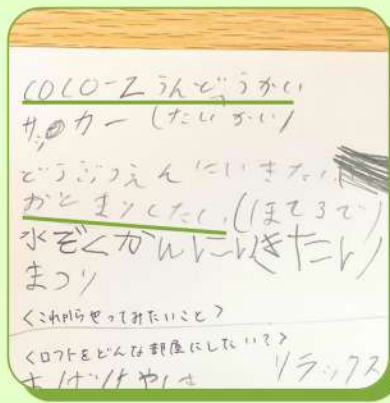 COCO-Zうんどうかい
サッカー (たいかい)
どうぶつえんにいきたい
おとまりしたい (ほてるで)
水ぞくかんにいきたい
まつり
<これからやってみたいこと>
<ロフトをどんな部屋にしたい?>
リラックス